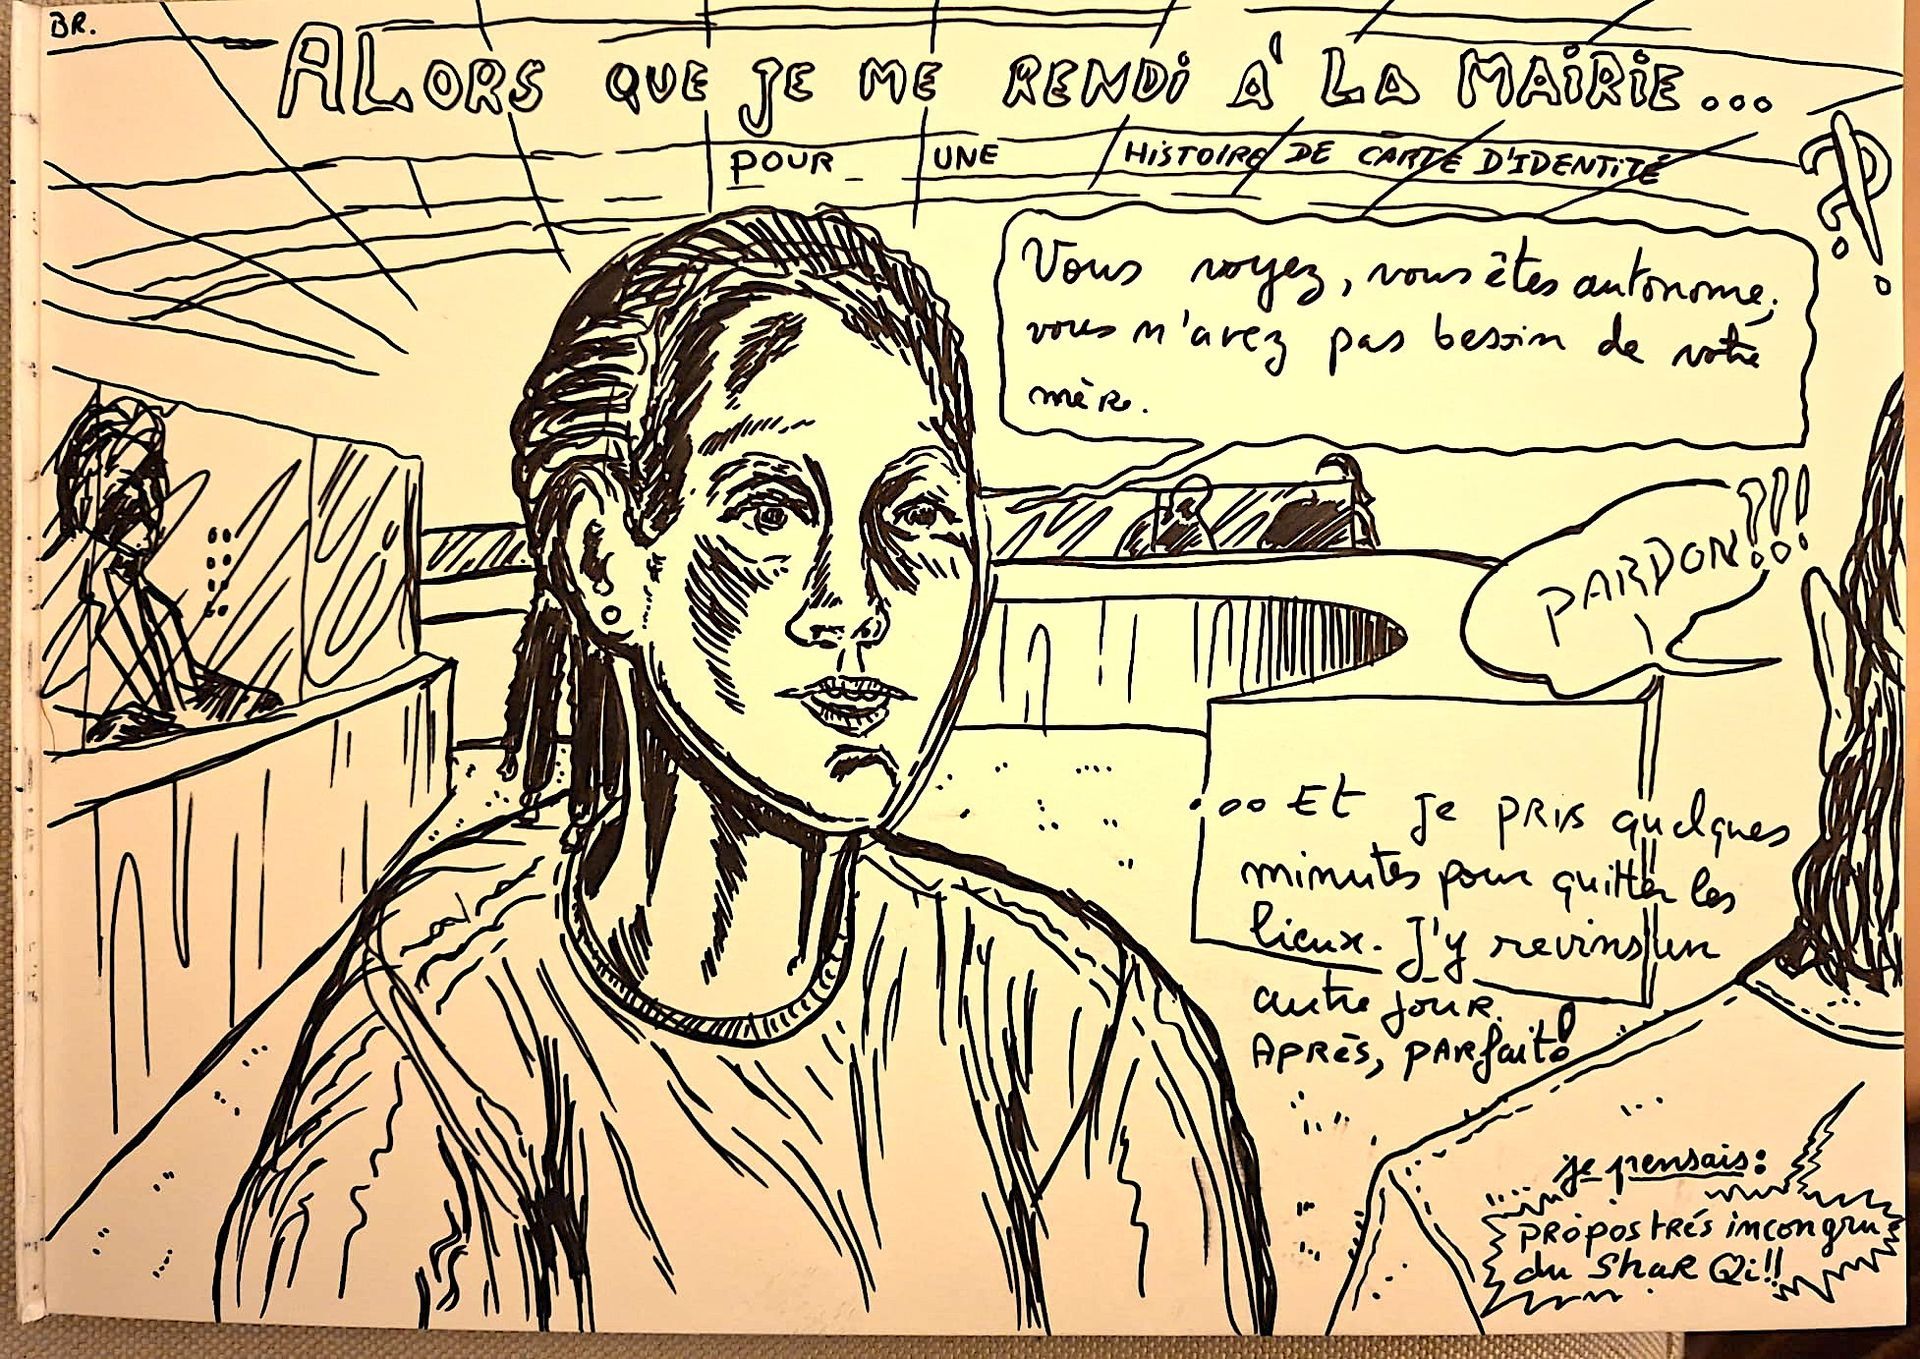 BR.
ALORS QUE JE ME RENDI A' LA MAIRIE...
POUR UNE HISTOIRE DE CARTE D'IDENTITÉ
?!
Vous voyez, vous êtes autonome,
vous n'avez pas besoin de votre
mère.
PARDON?!!
... Et je pris quelques
minutes pour quitter les
lieux. J'y revins un
autre jour.
Après, parfait!
je pensais:
propos trés incongru
du Shar Qi!!